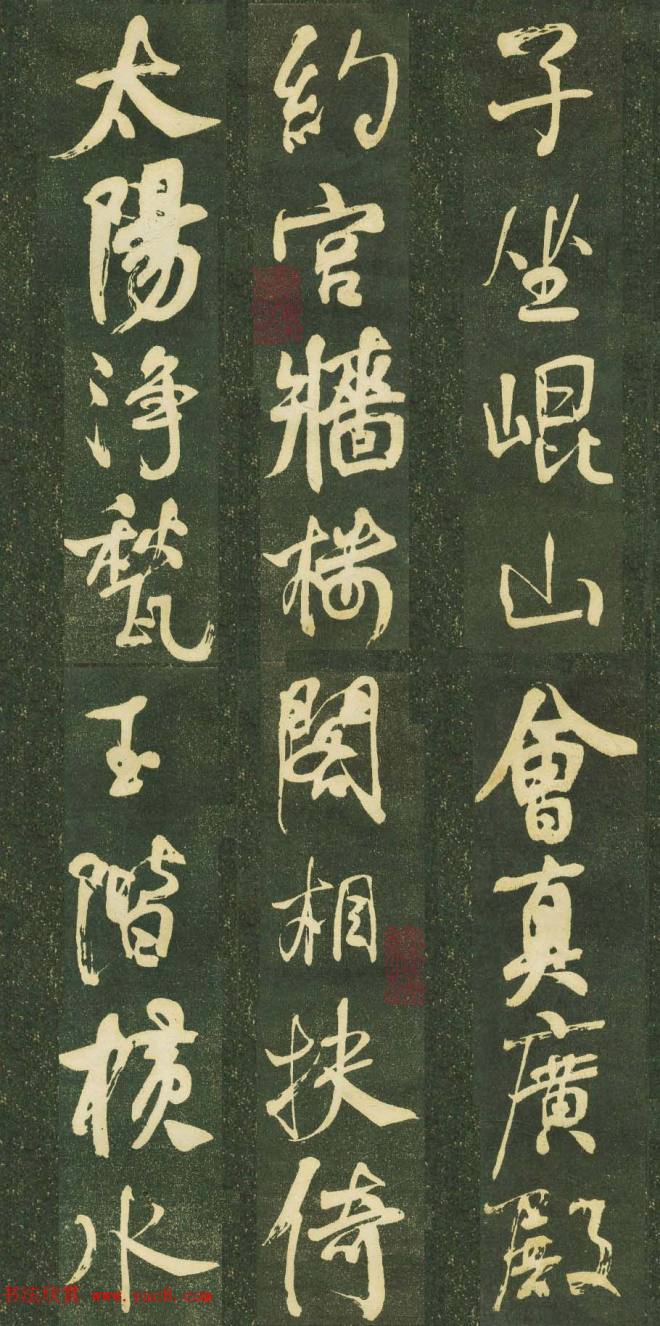 子坐崐山會真廣殿
約宮牆樓閣相扶倚
太陽淨甃玉階橫水
书法欣赏 www.yac8.com